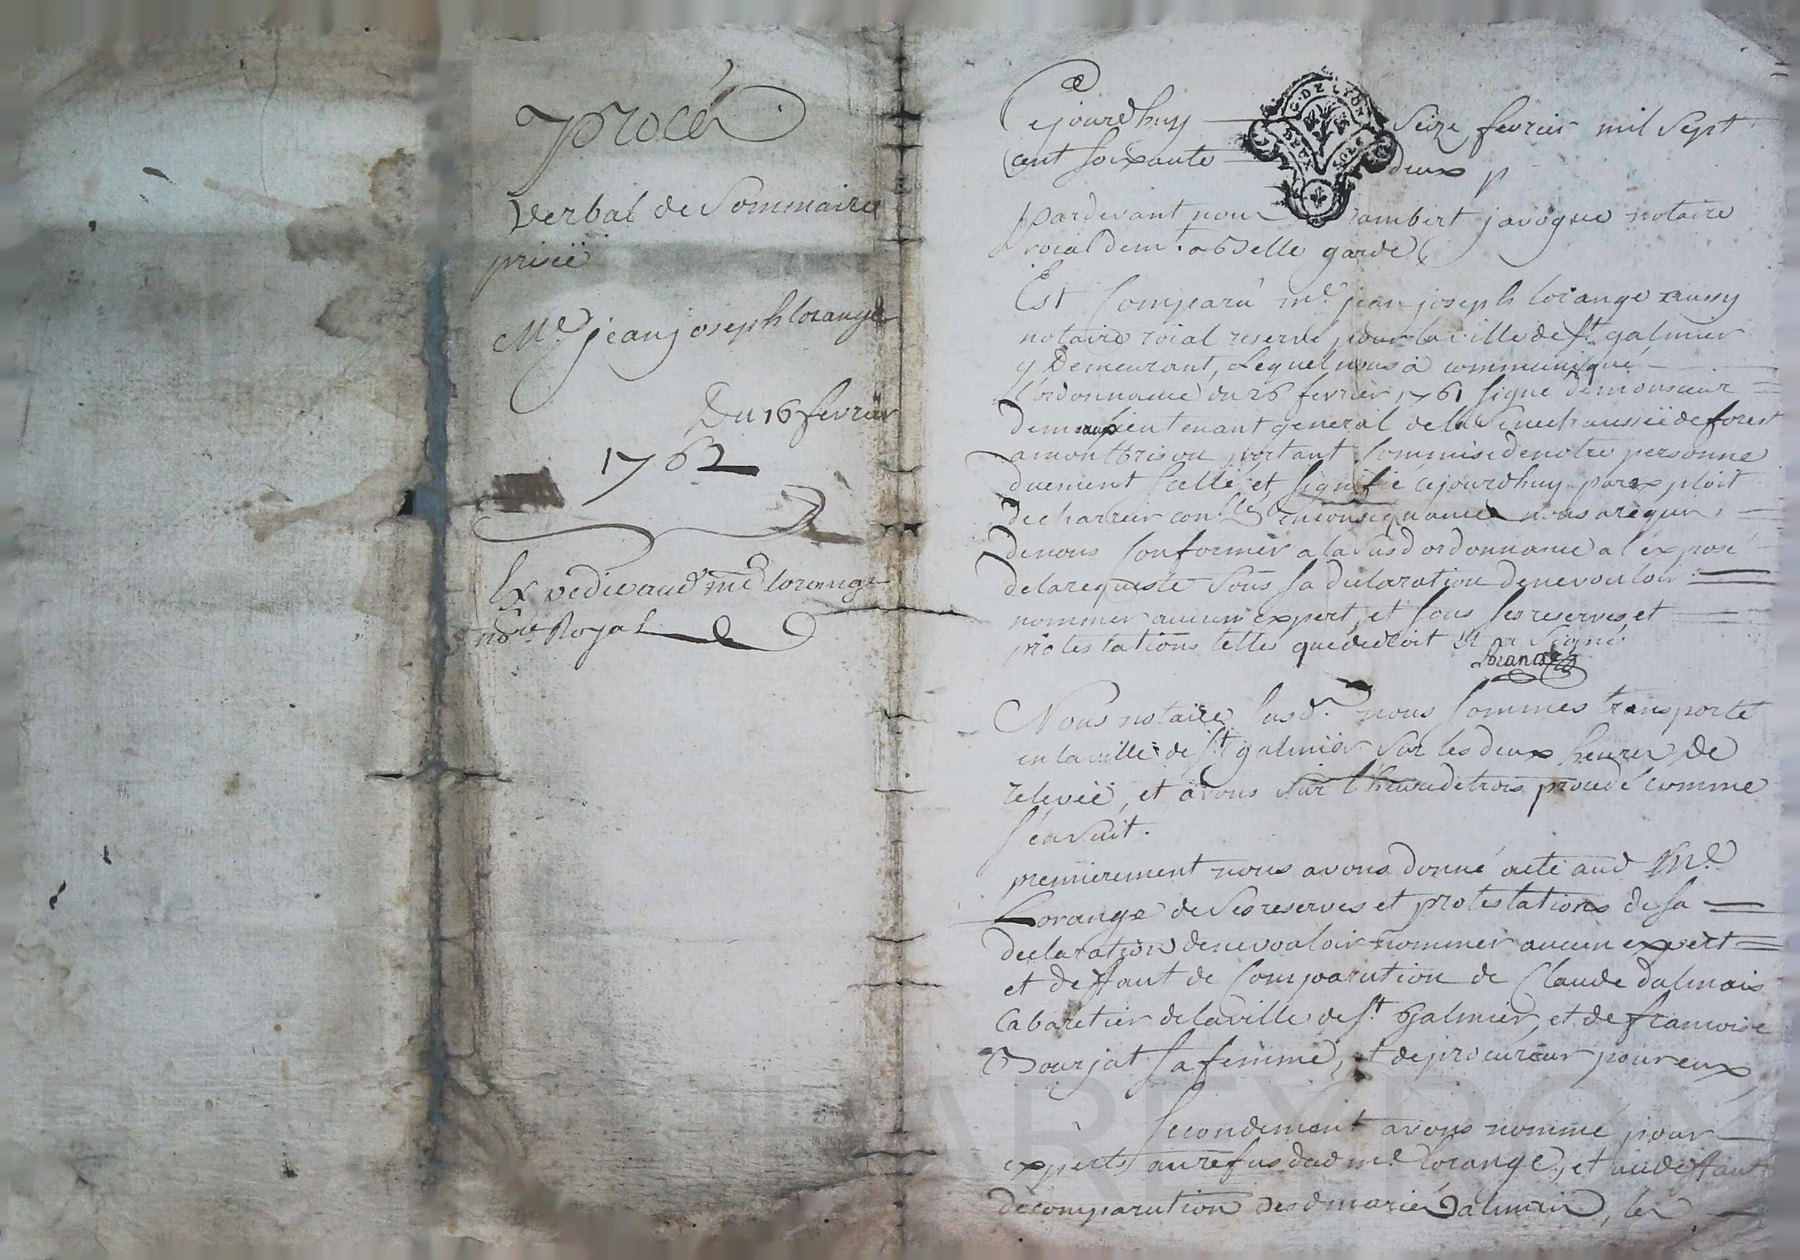 Procè
Verbal de Sommaire
prisië
Me. jean joseph lorange
Du 16 fevrier
1762
Ex vedierand me lorange
nore Royal
Cejourdhuy seize fevrier mil sept
G. DE LYON
cent soixante deux
pardevant nous rambert javogue notaire
roial demt. a Bellegarde
Est Comparu me. jean joseph lorange aussy
notaire roial reservé pour la ville de st galmier
y Demeurant, Lequel nous a communiqué
l'ordonnance du 26 fevrier 1761 signé de monsieur
lieutenant general de la Senechaussëe de forest
a montbrison portant Commise de notre personne
duement scellé et signifié cejourdhuy par exploit
de charreir en consequance nous a requis
de nous Conformer a la susd ordonnance a l'exposé
de la requiste sous sa declaration de ne vouloir
nommer aucun expert, et sous ses reserves, et
protestations telles que de droit et a Signé.
Lorange
Nous notaire susd. nous sommes transporté
en la ville de st galmier sur les deux heures de
relevëe, et avons sur l'heure de trois procedé comme
s'ensuit.
premierement nous avons donné acte aud Me.
Lorange de ses reserves et protestations de sa
declaration de ne vouloir nommer aucun expert
et deffaut de Comparution de Claude dalmais
Cabaretier de la ville de st. Galmier, et de francoise
Bourjat sa femme, et de procureur pour eux
Secondement avons nommé pour
experts au refus dud me. lorange, et au deffaut
de comparution desd mariés Dalmais, les